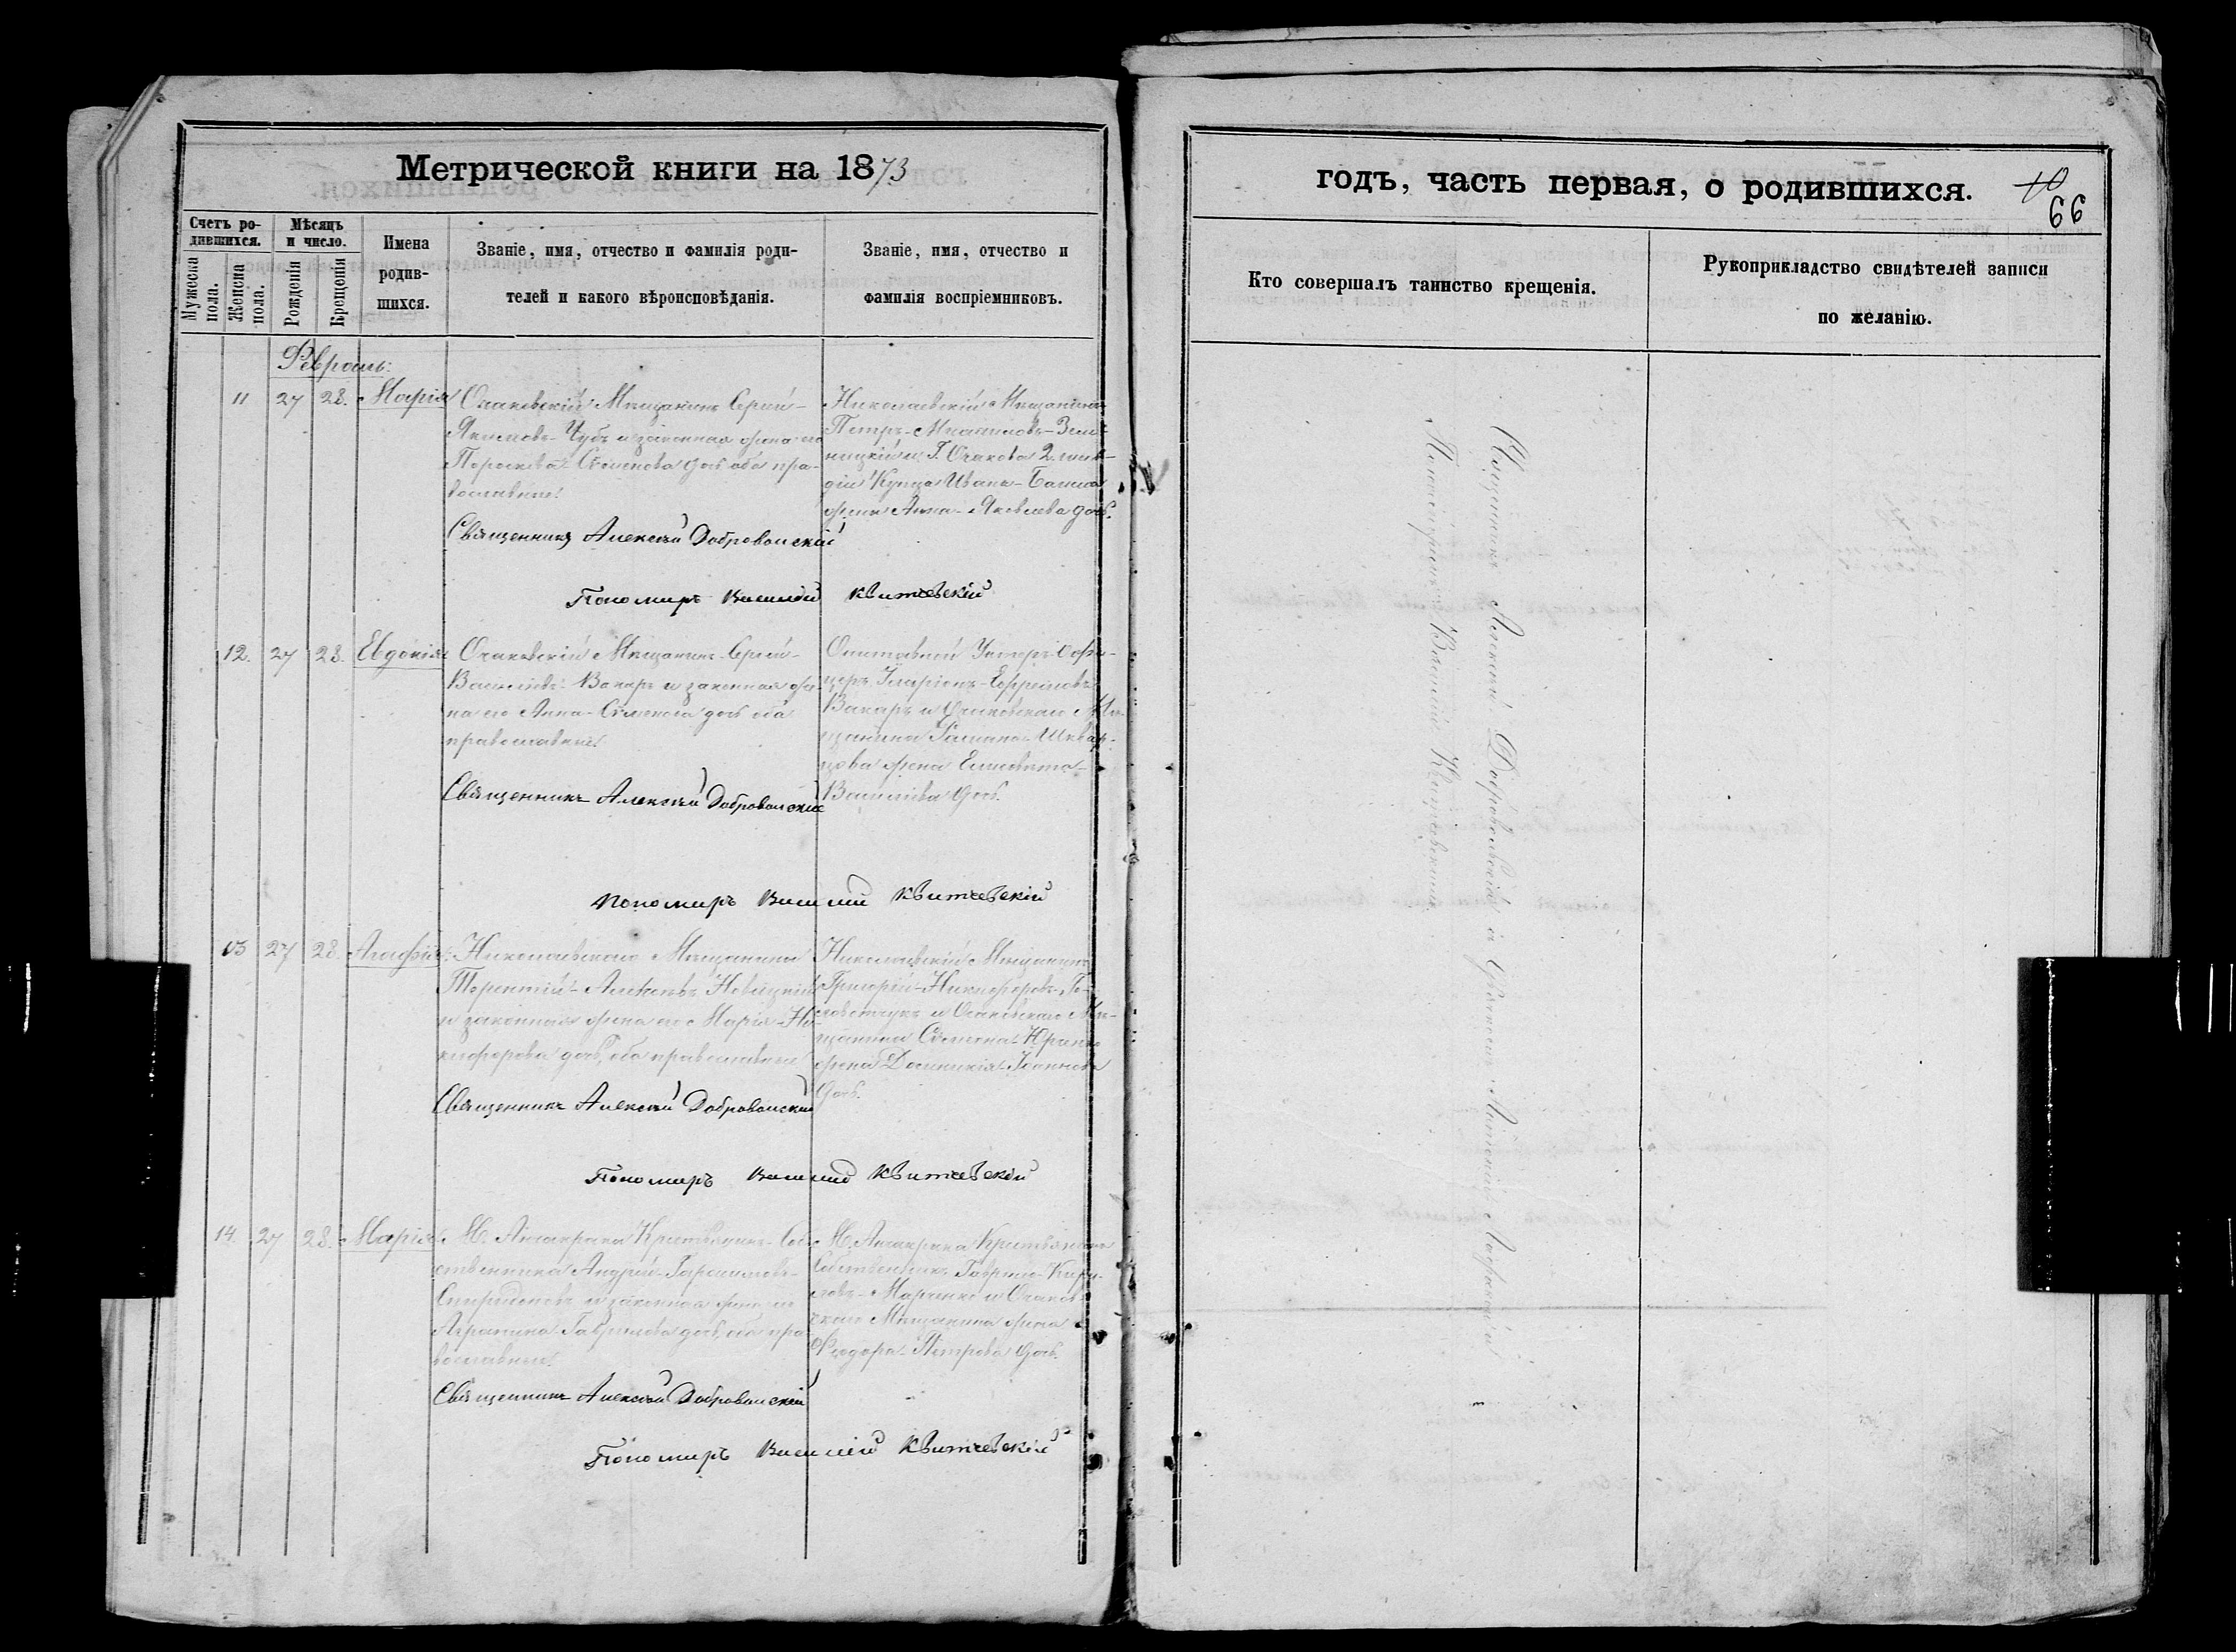 Метрической книги на 1873
Счетъ ро-
дившихся.
Мужеска
пола.
Женска
пола.
Мѣсяцъ
и число.
Рожденія
Крещенія
Имена
родив-
шихся.
Званіе, имя, отчество и фамилія роди-
телей и какого вѣроисповѣданія.
Званіе, имя, отчество и
фамилія воспріемниковъ.
Февраль:
11 27 28. Марія
Очаковскій Мѣщанинъ Сергѣй-
Якимовъ- Чубъ и законная жена его
Параскева- Семенова дочь оба пра-
вославные.
Священникъ Алексѣй Добровольскій
Пономарь Василій Квитчевскій
Николаевскій Мѣщанинъ
Петръ-
ницкій и Г. Очакова 2. гиль-
діи Купца Ивана-
жена Анна- Яковлева дочь.
12. 27 28. Евдокія
Очаковскій Мѣщанинъ Сергѣй-
Васильевъ- Вакаръ и законная же-
на его Анна- Семенова дочь оба
православные.
Священникъ Алексѣй Добровольскій
Пономарь Василій Квитчевскій
Отставной Унтеръ-Офи-
церъ Иларіонъ- Ефремовъ-
Вакаръ и Очаковскаго Мѣ-
щанина Шквар-
цова жена Елисавета-
Васильева дочь.
13 27 28. Агафія
Николаевскаго Мѣщанина
Терентій- Алексѣевъ Новицкій
и законная жена его Марія- Ни-
кифорова дочь, оба православные
Священникъ Алексѣй Добровольскій
Пономарь Василій Квитчевскій
Николаевскій Мѣщанинъ
Григорій- Никифоровъ- Го-
и Очаковскаго Мѣ-
щанина Семена-
жена Домникія- Іоаннова
дочь.
14. 27 28. Марія
М. Анчакрака Крестьянинъ- Соб-
ственника Андрей- Герасимовъ-
Спиридоновъ и законная жена его
Агрипина- Гаврилова дочь, оба пра-
вославные.
Священникъ Алексѣй Добровольскій
Пономарь Василій Квитчевскій
М. Анчакрака Крестьянинъ
Собственникъ Гаврило- Кири-
ловъ- Марченко и Очаков-
скаго Мѣщанина жена
Ѳеодора- Петрова дочь.
годъ, часть первая, о родившихся.
10
66
Кто совершалъ таинство крещенія.
Рукоприкладство свидѣтелей записи
по желанію.
Священникъ Алексѣй Добровольскій
Василій Квитчевскій